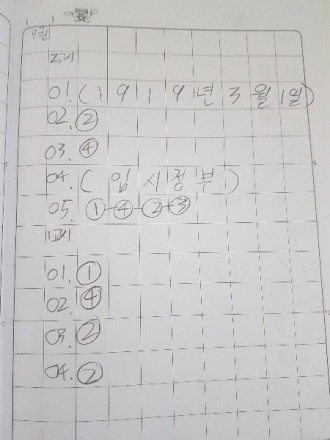 9월
2교시
01. (1919년 3월 1일)
02. ②
03. ④
04. (임시정부)
05. ①-④-②-③
1교시
01. ①
02. ④
03. ②
04. ②